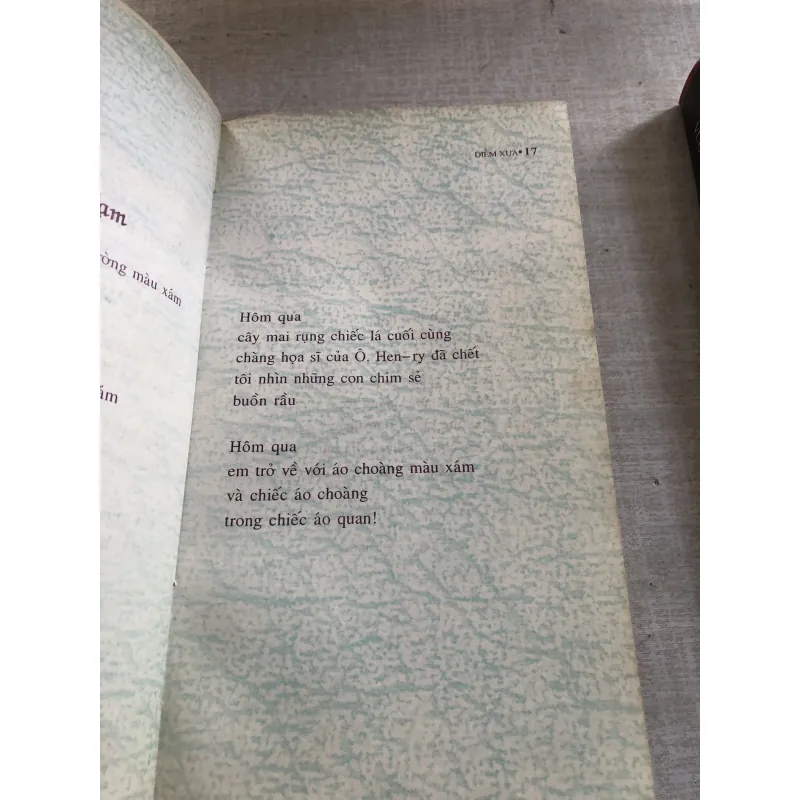 ờng màu xám
ám
DIỄM XƯA• 17
Hôm qua
cây mai rụng chiếc lá cuối cùng
chàng họa sĩ của Ô. Hen-ry đã chết
tôi nhìn những con chim sẻ
buồn rầu
Hôm qua
em trở về với áo choàng màu xám
và chiếc áo choàng
trong chiếc áo quan!